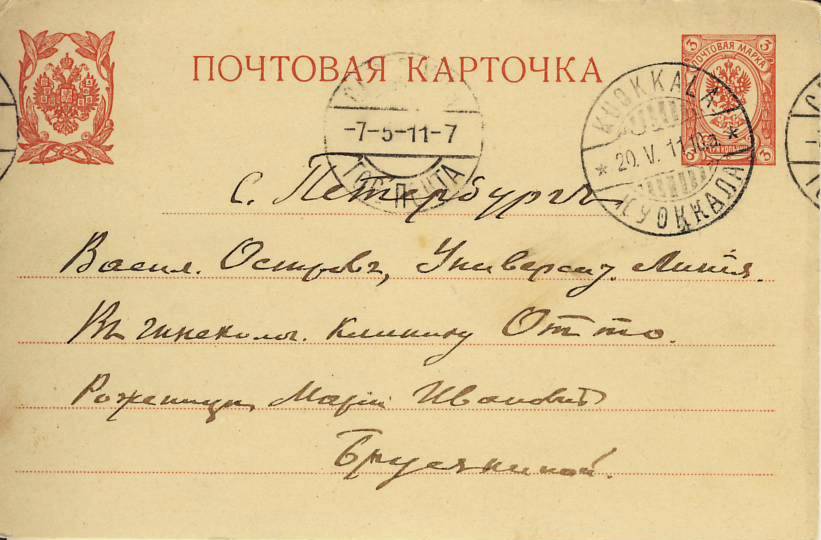 ПОЧТОВАЯ КАРТОЧКА
3 ПОЧТОВАЯ МАРКА 3
3 ТРИ КОП. 3
-7-5-11-7
ГОР. ПОЧТА
KUOKKALA
20. V. 11. 10a.
КУОККАЛА
С. Петербургъ
Васил. Островъ, Университ. Линія.
Въ гинеколог. клинику Отто.
Роженицѣ Маріи Ивановнѣ
Брусяниной.